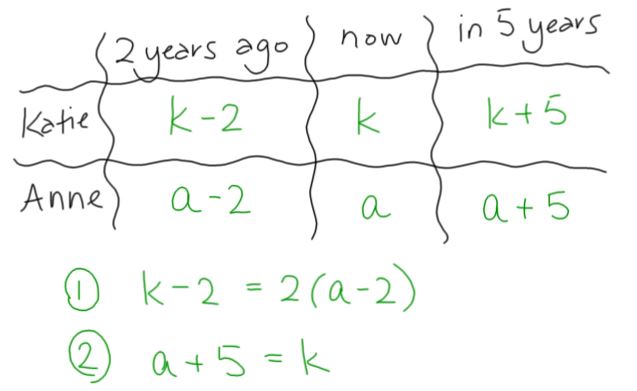 2 years ago now in 5 years
Katie k-2 k k+5
Anne a-2 a a+5
① k-2 = 2(a-2)
② a+5 = k